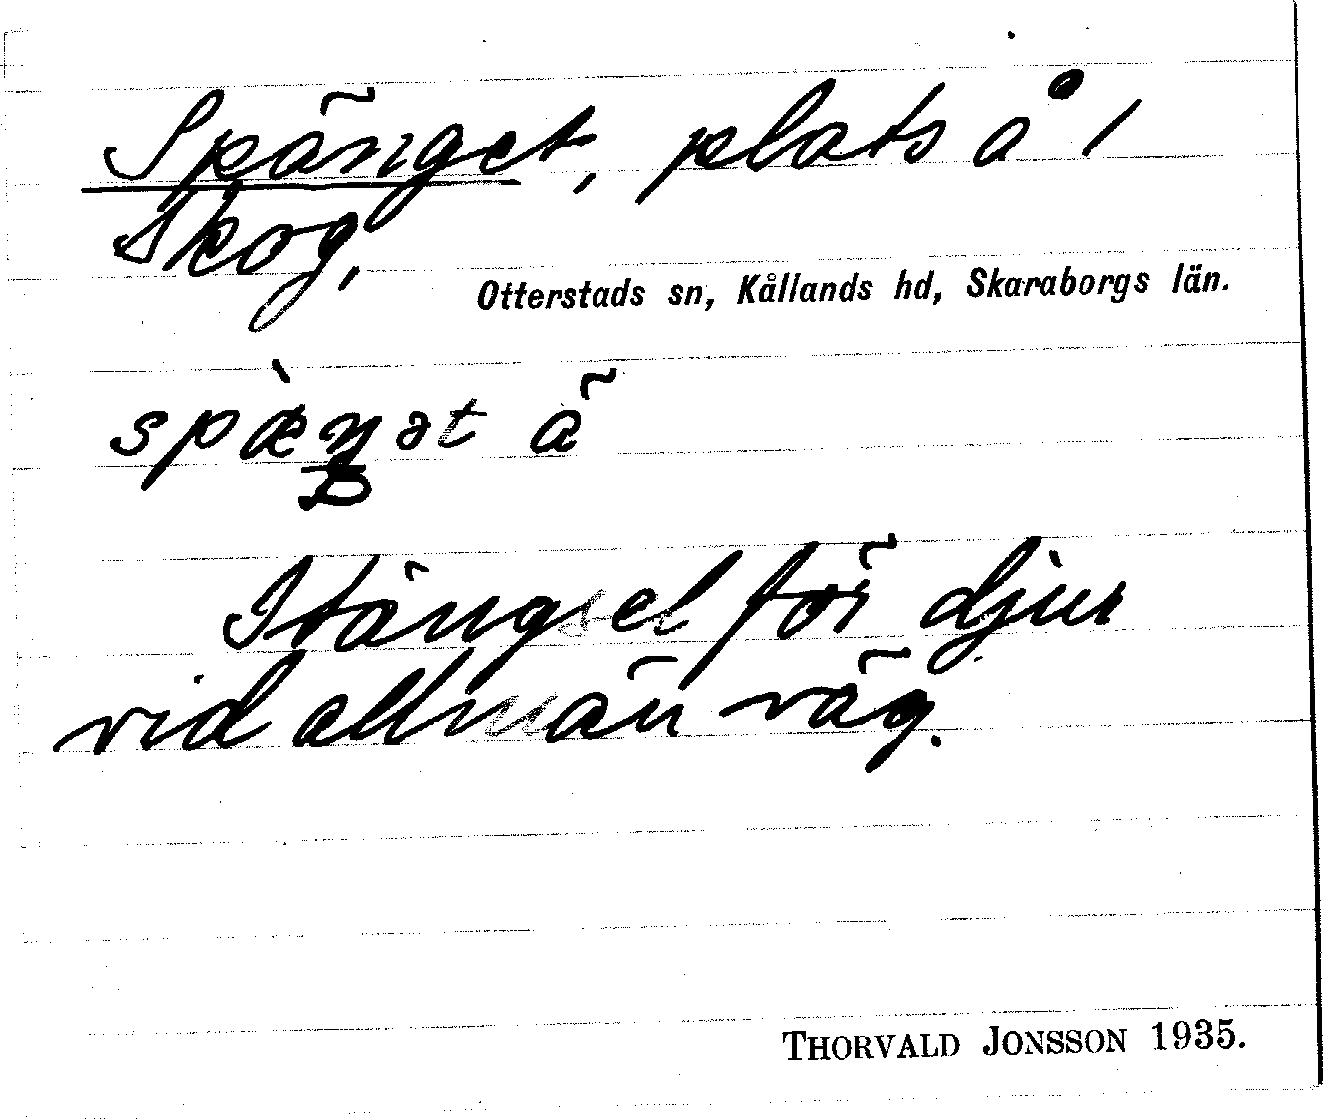 Spänget, plats å 1
Skog,
Otterstads sn, Kållands hd, Skaraborgs län.
spæ̀ŋət ä
Stängsel för djur
vid allmän väg.
THORVALD JONSSON 1935.